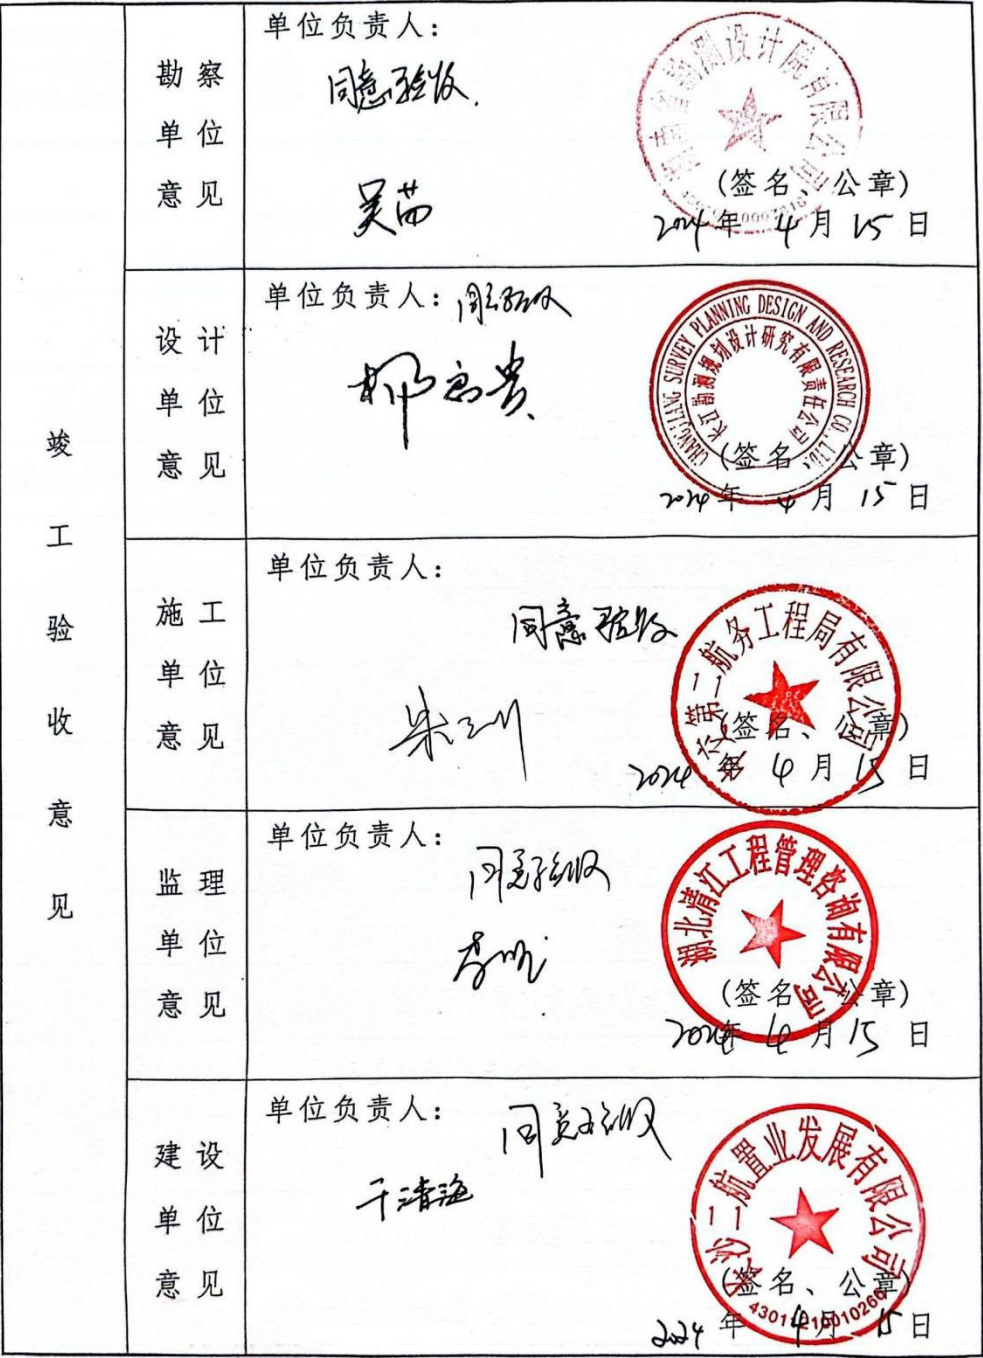 竣工验收意见
勘察单位意见
单位负责人:
同意验收.
吴苗
湖南省勘测设计院有限公司
(签名、公章)
2024年 4月 15日
设计单位意见
单位负责人: 同意验收
CHANGJIANG SURVEY PLANNING DESIGN AND RESEARCH CO., LTD.
长江勘测规划设计研究有限责任公司
(签名、公章)
2024年 4月 15日
施工单位意见
单位负责人:
同意验收
中交第二航务工程局有限公司
(签名、公章)
2024年 4月 15日
监理单位意见
单位负责人:
同意验收
湖北清江工程管理咨询有限公司
(签名、公章)
2024年 4月 15日
建设单位意见
单位负责人:
同意验收
于清海
长沙二航置业发展有限公司
(签名、公章)
2024年 4月 15日